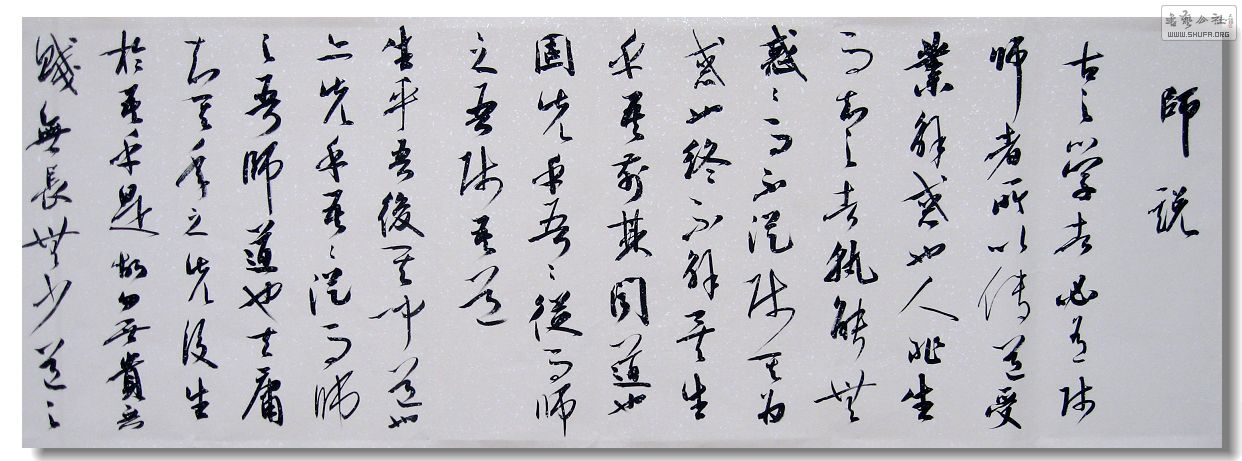 師説
古之學者必有师
師者所以傳道受
業解惑也人非生
而知之者孰能無
惑々而不從师其为
惑也終不解矣生
乎吾前其聞道也
固先乎吾々從而師
之吾师吾道
生乎吾後其聞道也
亦先乎吾々從而師
之吾師道也夫庸
知其年之先後生
於吾乎是故無貴無
賤無長無少道之
書藝公社
WWW.SHUFA.ORG